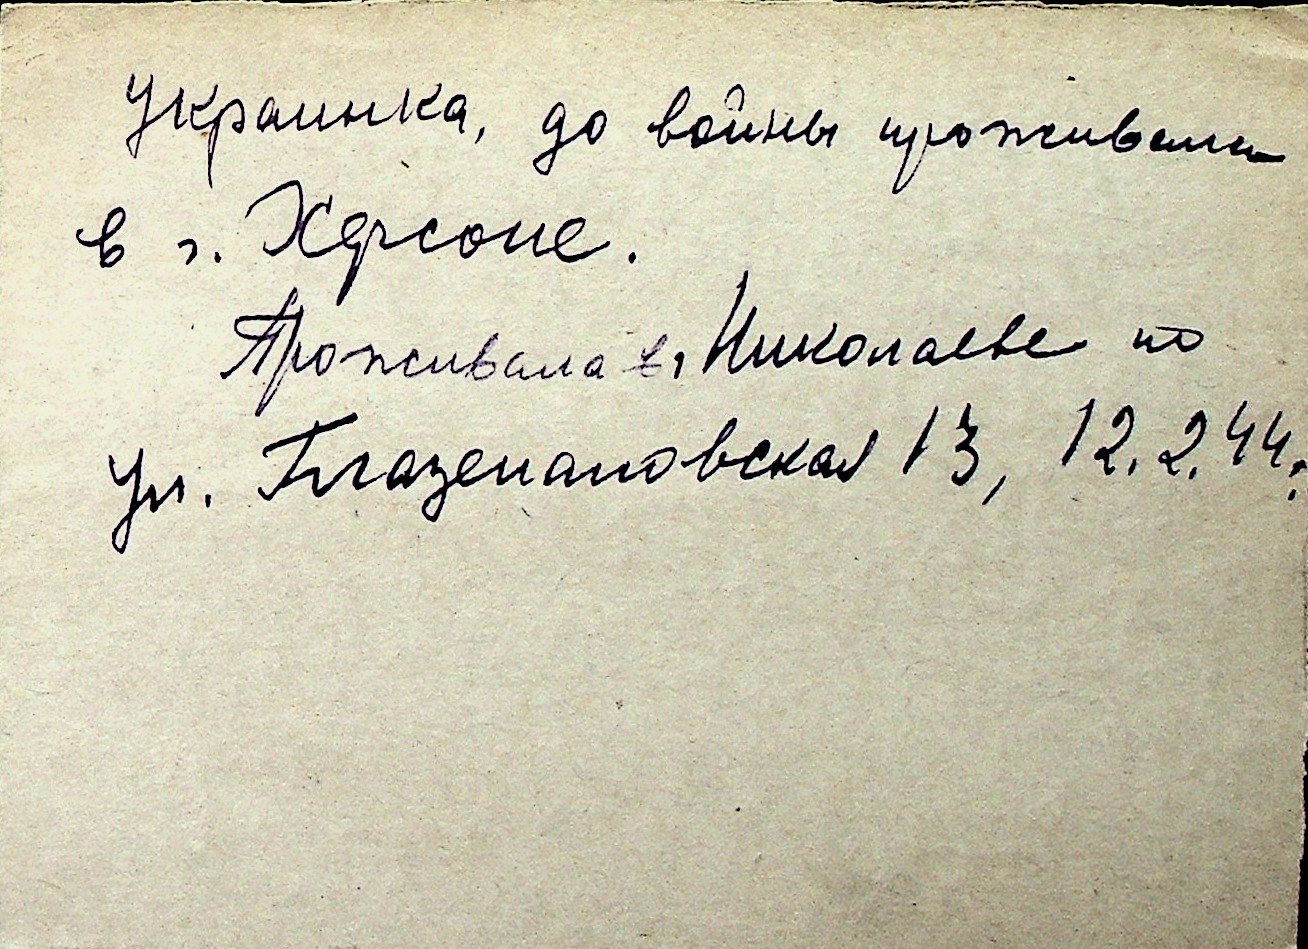 Украинка, до войны проживала
в г. Херсоне.
Проживала в г. Николаеве по
ул. Глазенаповская 13, 12.2.44.